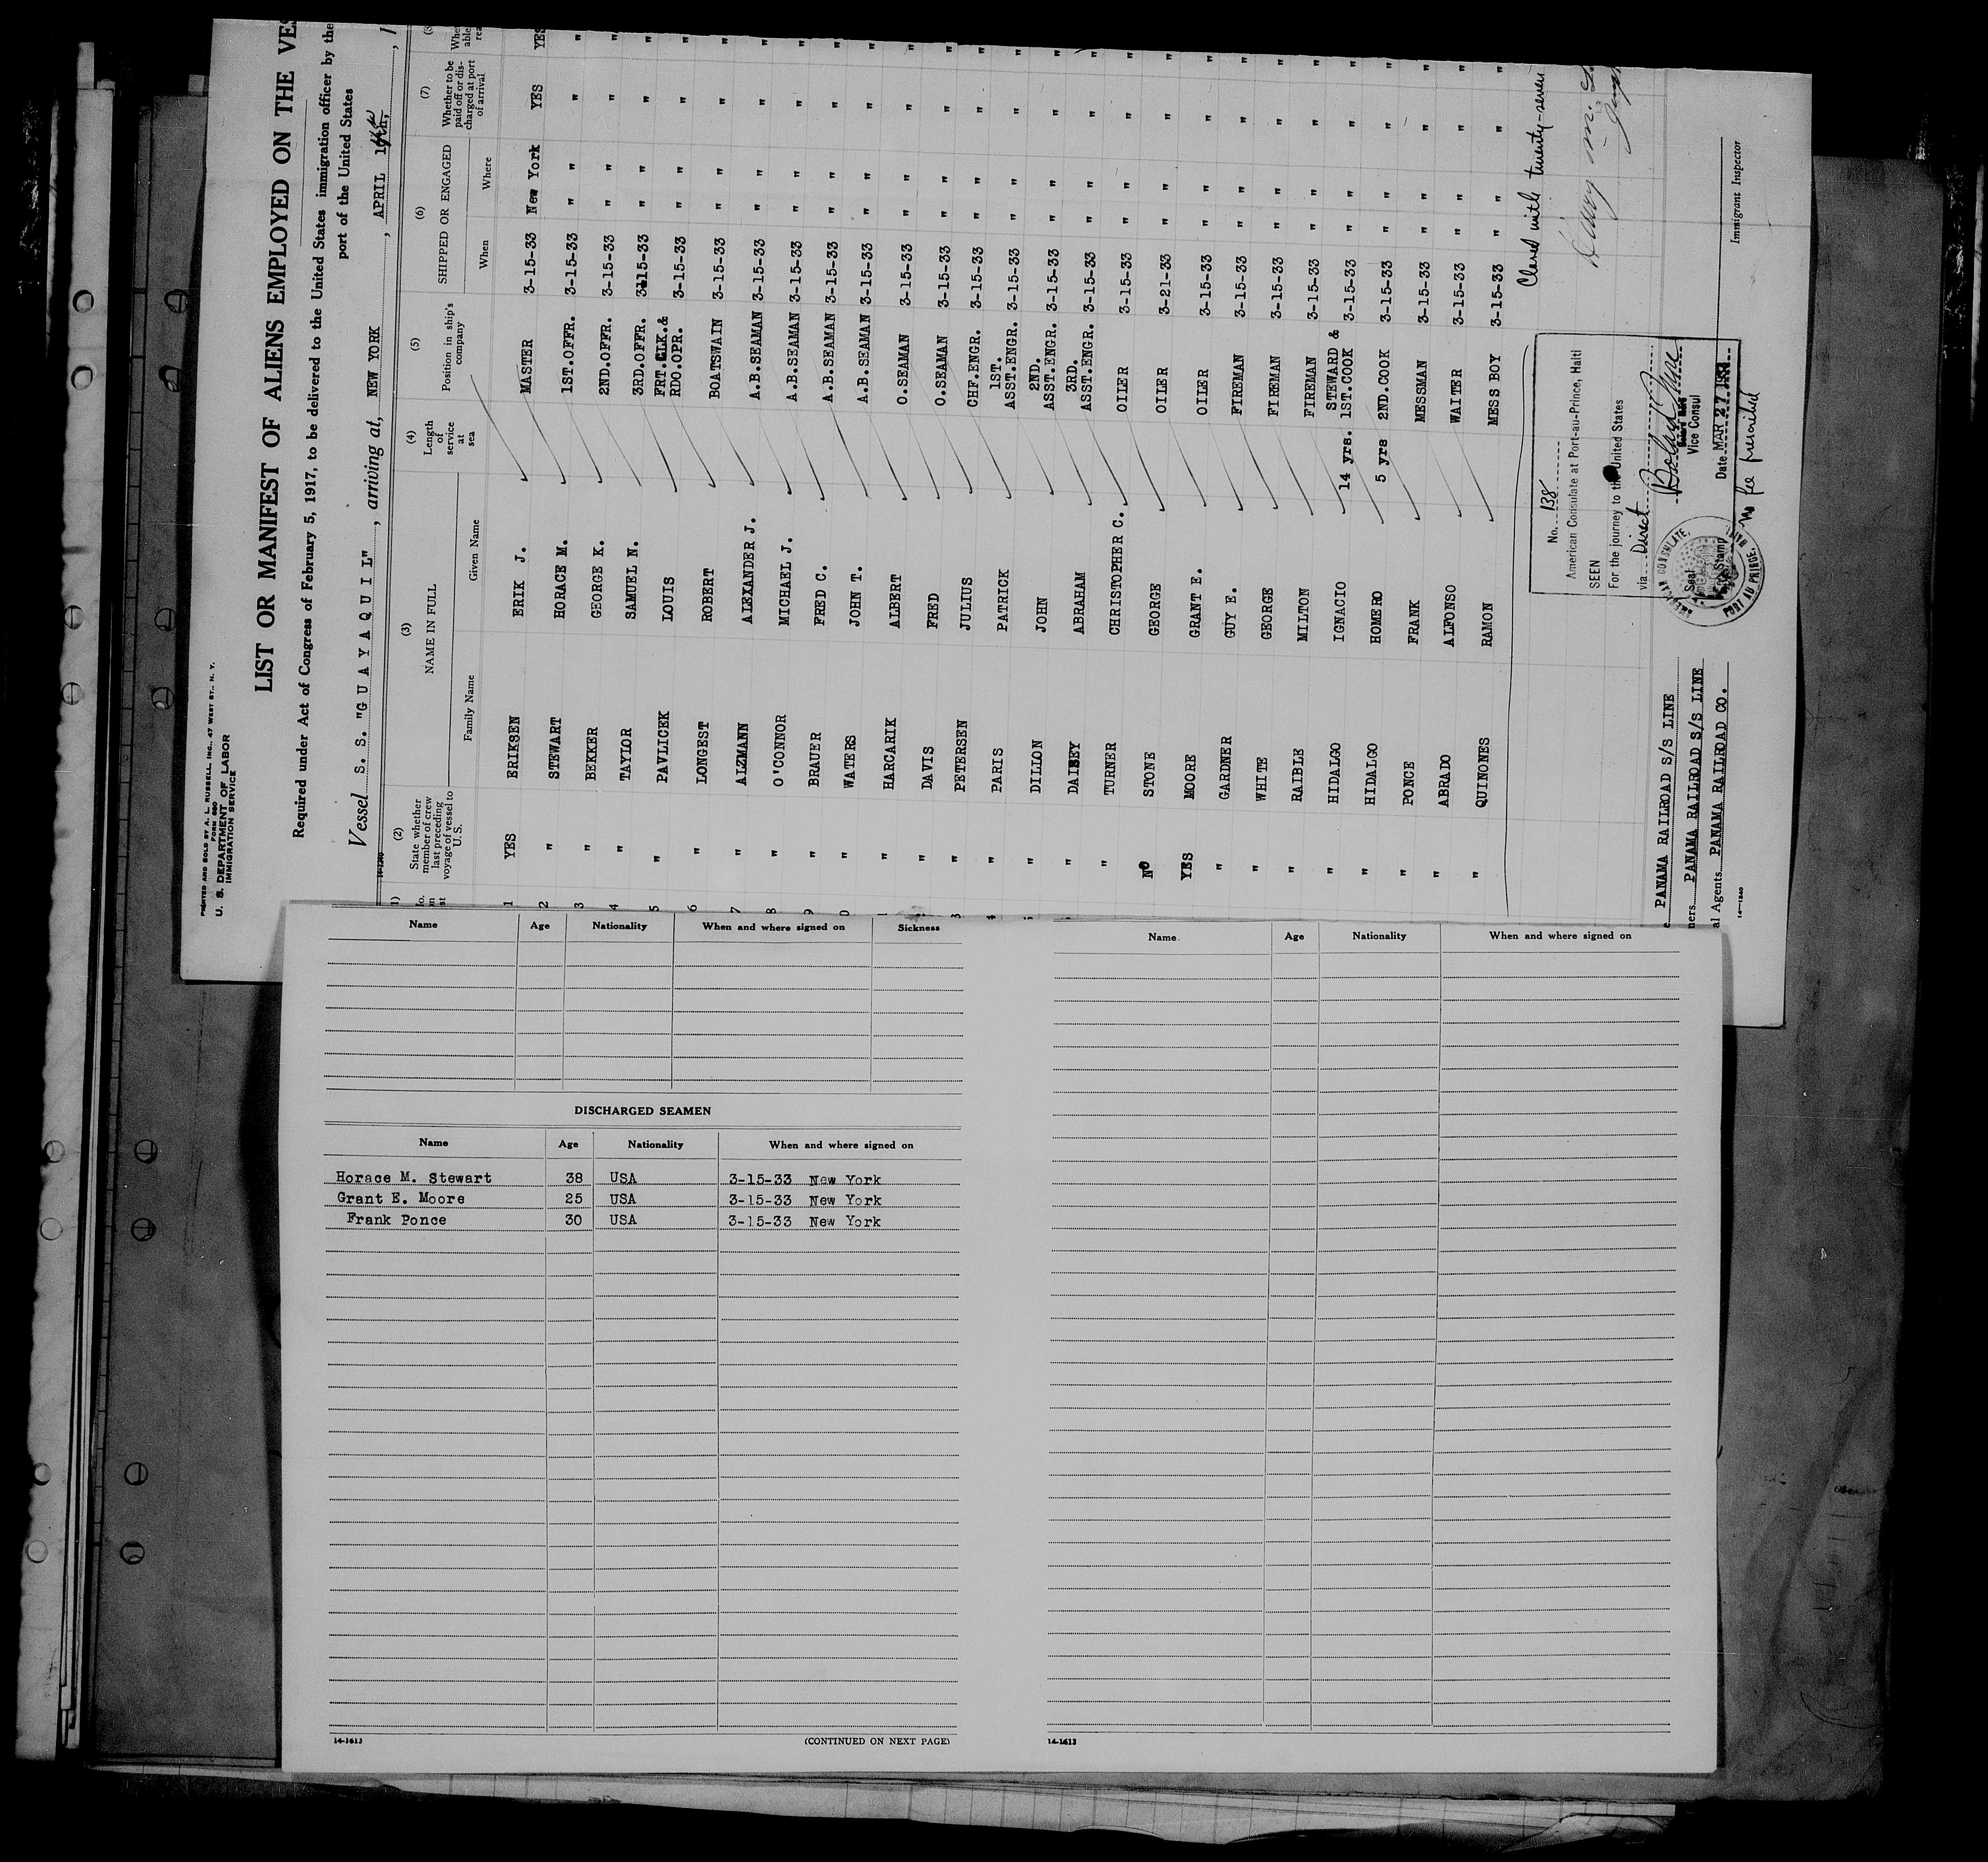 PRINTED AND SOLD BY A. L. RUSSELL, INC., 47 WEST ST., N. Y.
FORM 680
U. S. DEPARTMENT OF LABOR
IMMIGRATION SERVICE
LIST OR MANIFEST OF ALIENS EMPLOYED ON THE VES
Required under Act of Congress of February 5, 1917, to be delivered to the United States immigration officer by the
port of the United States
Vessel S. S. "G U A Y A Q U I L", arriving at, NEW YORK, APRIL
(2) (3) (4) (5) (6) (7)
State whether member of crew last preceding voyage of vessel to U. S. NAME IN FULL Length of service at sea Position in ship's company SHIPPED OR ENGAGED Whether to be paid off or discharged at port of arrival
Family Name Given Name When Where
1 YES ERIKSEN ERIK J. MASTER 3-15-33 New York YES YES
2 " STEWART HORACE M. 1ST.OFFR. 3-15-33 " " " "
3 " BEKKER GEORGE K. 2ND.OFFR. 3-15-33 " " " "
4 " TAYLOR SAMUEL N. 3RD.OFFR. 3-15-33 " " " "
5 " PAVLICEK LOUIS FRT.CLK.& RDO.OPR. 3-15-33 " " " "
6 " LONGEST ROBERT BOATSWAIN 3-15-33 " " " "
7 " ALZMANN ALEXANDER J. A.B.SEAMAN 3-15-33 " " " "
8 " O'CONNOR MICHAEL J. A.B.SEAMAN 3-15-33 " " " "
9 " BRAUER FRED C. A.B.SEAMAN 3-15-33 " " " "
0 " WATERS JOHN T. A.B.SEAMAN 3-15-33 " " " "
1 " HARCARIK ALBERT O.SEAMAN 3-15-33 " " " "
" DAVIS FRED O.SEAMAN 3-15-33 " " " "
3 " PETERSEN JULIUS CHF.ENGR. 3-15-33 " " " "
4 " PARIS PATRICK 1ST. ASST.ENGR. 3-15-33 " " " "
" DILLON JOHN 2ND. ASST.ENGR. 3-15-33 " " " "
" ABRAHAM 3RD. ASST.ENGR. 3-15-33 " " " "
" TURNER CHRISTOPHER C. OILER 3-15-33 " " " "
NO STONE GEORGE OILER 3-21-33 " " " "
YES MOORE GRANT E. OILER 3-15-33 " " " "
" GARDNER GUY E. FIREMAN 3-15-33 " " " "
" WHITE GEORGE FIREMAN 3-15-33 " " " "
" RAIBLE MILTON FIREMAN 3-15-33 " " " "
" HIDALGO IGNACIO 14 yrs. STEWARD & 1ST.COOK 3-15-33 " " " "
" HIDALGO HOMERO 5 yrs 2ND.COOK 3-15-33 " " " "
" PONCE FRANK MESSMAN 3-15-33 " " " "
" ABRADO ALFONSO WAITER 3-15-33 " " " "
" QUINONES RAMON MESS BOY 3-15-33 " " " "
Closed with twenty-seven
No. 138
American Consulate at Port-au-Prince, Haiti
SEEN
For the journey to the United States
via Direct
Vice Consul
Date MAR 27
No fee prescribed
AMERICAN CONSULATE,
PORT AU PRINCE,
Seal
Stamp
PANAMA RAILROAD S/S LINE
ners PANAMA RAILROAD S/S LINE
al Agents PANAMA RAILROAD CO.
Immigrant Inspector
14-1240
Name Age Nationality When and where signed on Sickness
DISCHARGED SEAMEN
Name Age Nationality When and where signed on
Horace M. Stewart 38 USA 3-15-33 New York
Grant E. Moore 25 USA 3-15-33 New York
Frank Ponce 30 USA 3-15-33 New York
14-1613 (CONTINUED ON NEXT PAGE)
Name Age Nationality When and where signed on
14-1613